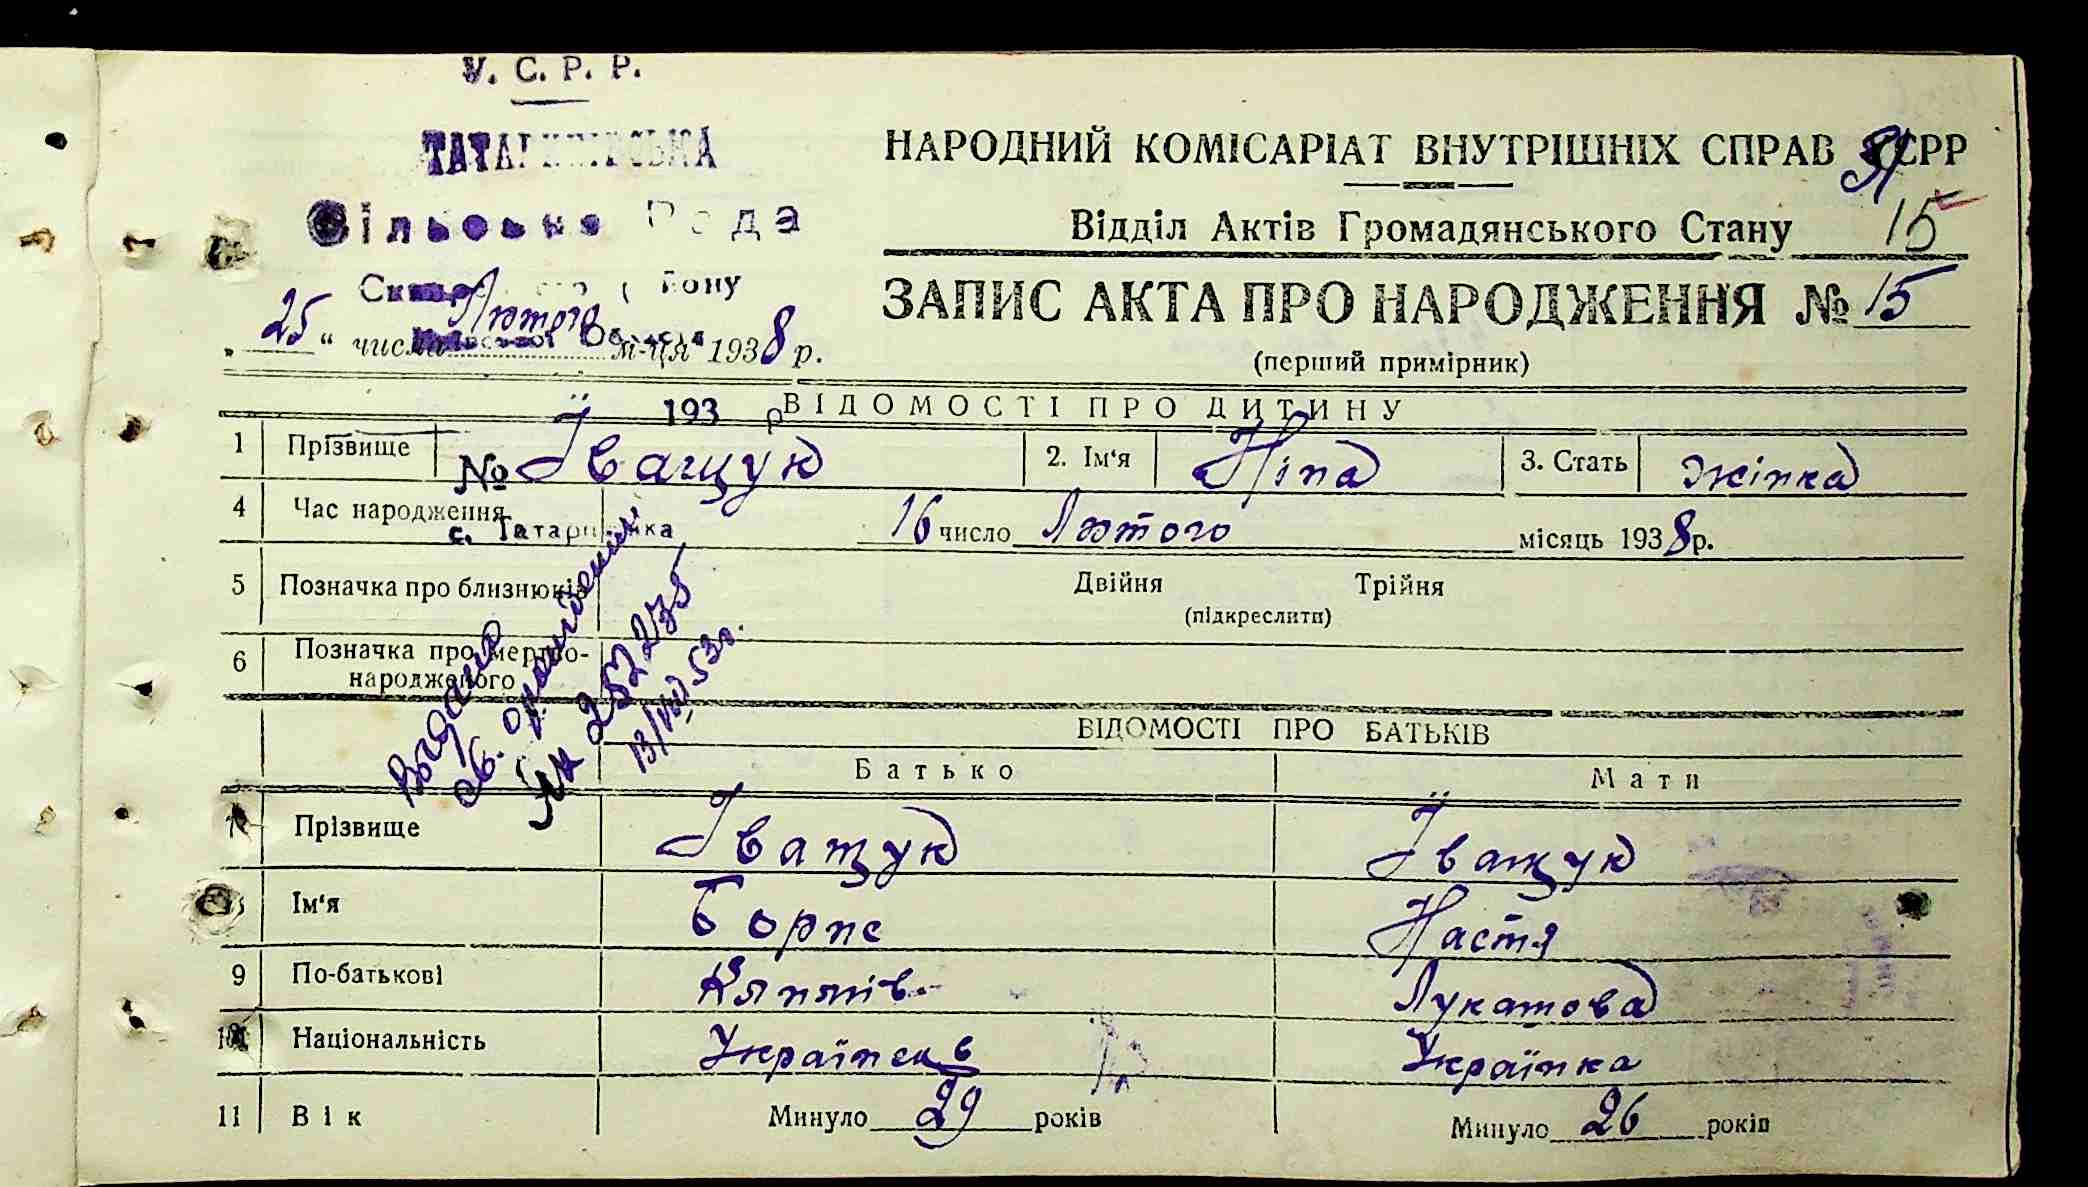 У. С. Р. Р.
ТАТАРИНІВСЬКА
Сільська Рада
НАРОДНИЙ КОМІСАРІАТ ВНУТРІШНІХ СПРАВ УСРР
Відділ Актів Громадянського Стану 15
ЗАПИС АКТА ПРО НАРОДЖЕННЯ № 15
(перший примірник)
„25“ числа Лютого м-ця 1938 р.
193 р
ВІДОМОСТІ ПРО ДИТИНУ
1 Прізвище № Іващук 2. Ім'я Ніна 3. Стать жінка
4 Час народження 16 число Лютого місяць 1938 р.
с. Татаринівка
5 Позначка про близнюків Двійня Трійня
(підкреслити)
6 Позначка про мертво-
народженого
Выдано
св. о рождении
252275
53г.
ВІДОМОСТІ ПРО БАТЬКІВ
Батько Мати
7 Прізвище Іващук Іващук
8 Ім'я Борис Настя
9 По-батькові Лукашова
10 Національність Українець Українка
11 Вік Минуло 29 років Минуло 26 років